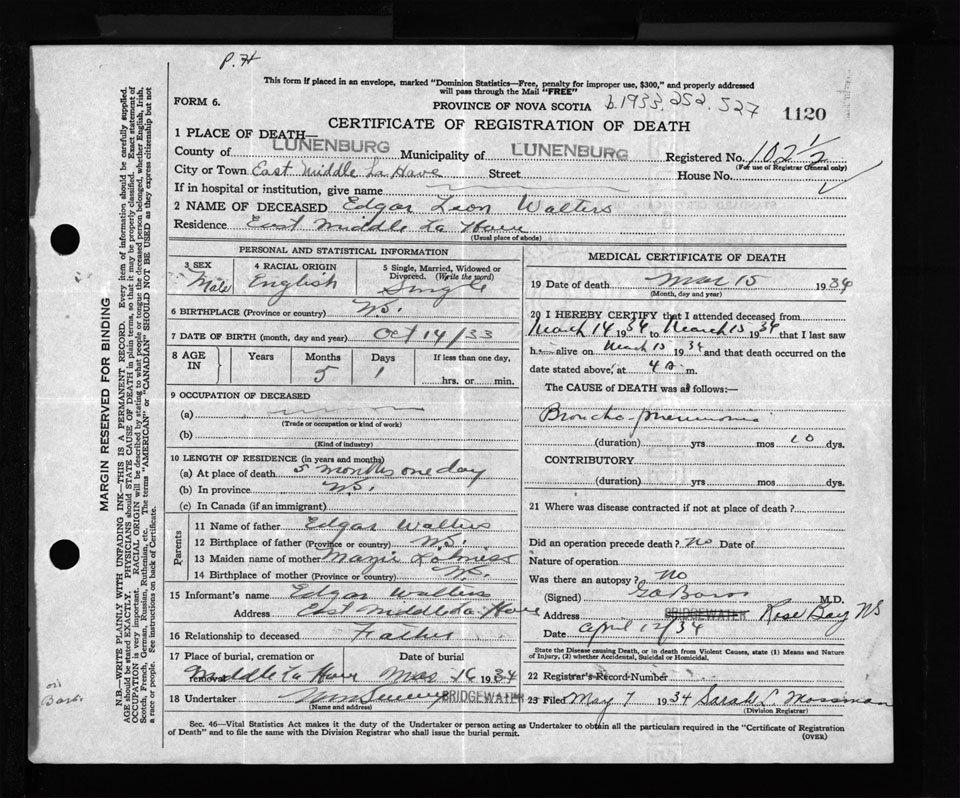 P.H
This form if placed in an envelope, marked "Dominion Statistics—Free, penalty for improper use, $300," and properly addressed
will pass through the Mail "FREE"
FORM 6.
PROVINCE OF NOVA SCOTIA
b.1933.252.527
1120
CERTIFICATE OF REGISTRATION OF DEATH
1 PLACE OF DEATH—
County of LUNENBURG Municipality of LUNENBURG Registered No. 102½
(For use of Registrar General only)
City or Town East Middle La Have Street House No.
If in hospital or institution, give name
2 NAME OF DECEASED Edgar Leon Walters
Residence East Middle La Have
(Usual place of abode)
PERSONAL AND STATISTICAL INFORMATION
3 SEX Male
4 RACIAL ORIGIN English
5 Single, Married, Widowed or Divorced. (Write the word) Single
6 BIRTHPLACE (Province or country) N.S.
7 DATE OF BIRTH (month, day and year) Oct 14/33
8 AGE IN Years Months 5 Days 1 If less than one day, hrs. or min.
9 OCCUPATION OF DECEASED
(a)
(Trade or occupation or kind of work)
(b)
(Kind of industry)
10 LENGTH OF RESIDENCE (in years and months)
(a) At place of death 5 months one day
(b) In province N.S.
(c) In Canada (if an immigrant)
Parents
11 Name of father Edgar Walters
12 Birthplace of father (Province or country) N.S.
13 Maiden name of mother
14 Birthplace of mother (Province or country) N.S.
15 Informant's name Edgar Walters
Address East Middle La Have
16 Relationship to deceased Father
17 Place of burial, cremation or removal Middle La Have
Date of burial Mar 16 1934
18 Undertaker BRIDGEWATER
(Name and address)
MEDICAL CERTIFICATE OF DEATH
19 Date of death Mar 15 1934
(Month, day and year)
20 I HEREBY CERTIFY that I attended deceased from
March 14 1934 to March 15 1934 that I last saw
h alive on March 15 1934 and that death occurred on
date stated above, at 4 a. m.
The CAUSE of DEATH was as follows:—
Broncho-pneumonia
(duration) yrs mos 10 dys.
CONTRIBUTORY
(duration) yrs mos dys.
21 Where was disease contracted if not at place of death?
Did an operation precede death? No Date of
Nature of operation
Was there an autopsy? No
(Signed) M.D.
Address BRIDGEWATER Rose Bay NS
Date April 12/34
State the Disease causing Death, or in death from Violent Causes, state (1) Means and Nature
of Injury, (2) whether Accidental, Suicidal or Homicidal.
22 Registrar's Record Number
23 Filed May 7 1934 Sarah L Mossman
(Division Registrar)
Sec. 46—Vital Statistics Act makes it the duty of the Undertaker or person acting as Undertaker to obtain all the particulars required in the "Certificate of Registration
of Death" and to file the same with the Division Registrar who shall issue the burial permit.
(OVER)
MARGIN RESERVED FOR BINDING
N.B.—WRITE PLAINLY WITH UNFADING INK—THIS IS A PERMANENT RECORD. Every item of information should be carefully supplied.
AGE should be stated EXACTLY. PHYSICIANS should STATE CAUSE OF DEATH in plain terms, so that it may be properly classified. Exact statement of
OCCUPATION is very important. RACIAL ORIGIN will be described by stating to what people or tongue the deceased person belonged, whether English, Irish,
Scotch, French, German, Russian, Ruthenian, etc. The terms "AMERICAN" or "CANADIAN" SHOULD NOT BE USED as they express citizenship but not
a race or people. See instructions on back of Certificate.